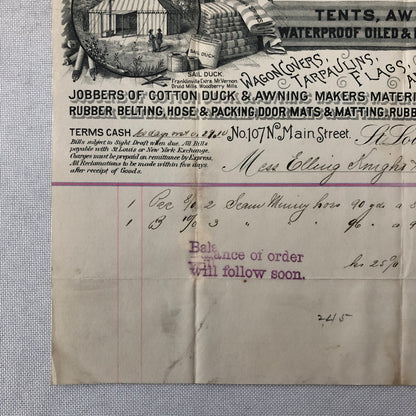 TENTS, AW
WATERPROOF OILED &
SAIL DUCK
SAIL DUCK.
Franklinville Extra. Mt Vernon
Druid Mills. Woodberry Mills.
WAGON COVERS,
TARPAULINS,
FLAGS,
JOBBERS OF COTTON DUCK & AWNING MAKERS MATER
RUBBER BELTING, HOSE & PACKING, DOOR MATS & MATTING, RUBB
TERMS CASH
No. 107 N. Main Street, St. Lo
Bills subject to Sight Draft when due. All Bills
payable with St. Louis or New York Exchange.
Charges must be prepaid on remittance by Express.
All Reclamations to be made within five days
after receipt of Goods.
Mess Elling Knight
1 Pce 2 90 yds a
1 B 3 " " 96 " a
Balance of order
will follow soon.
245